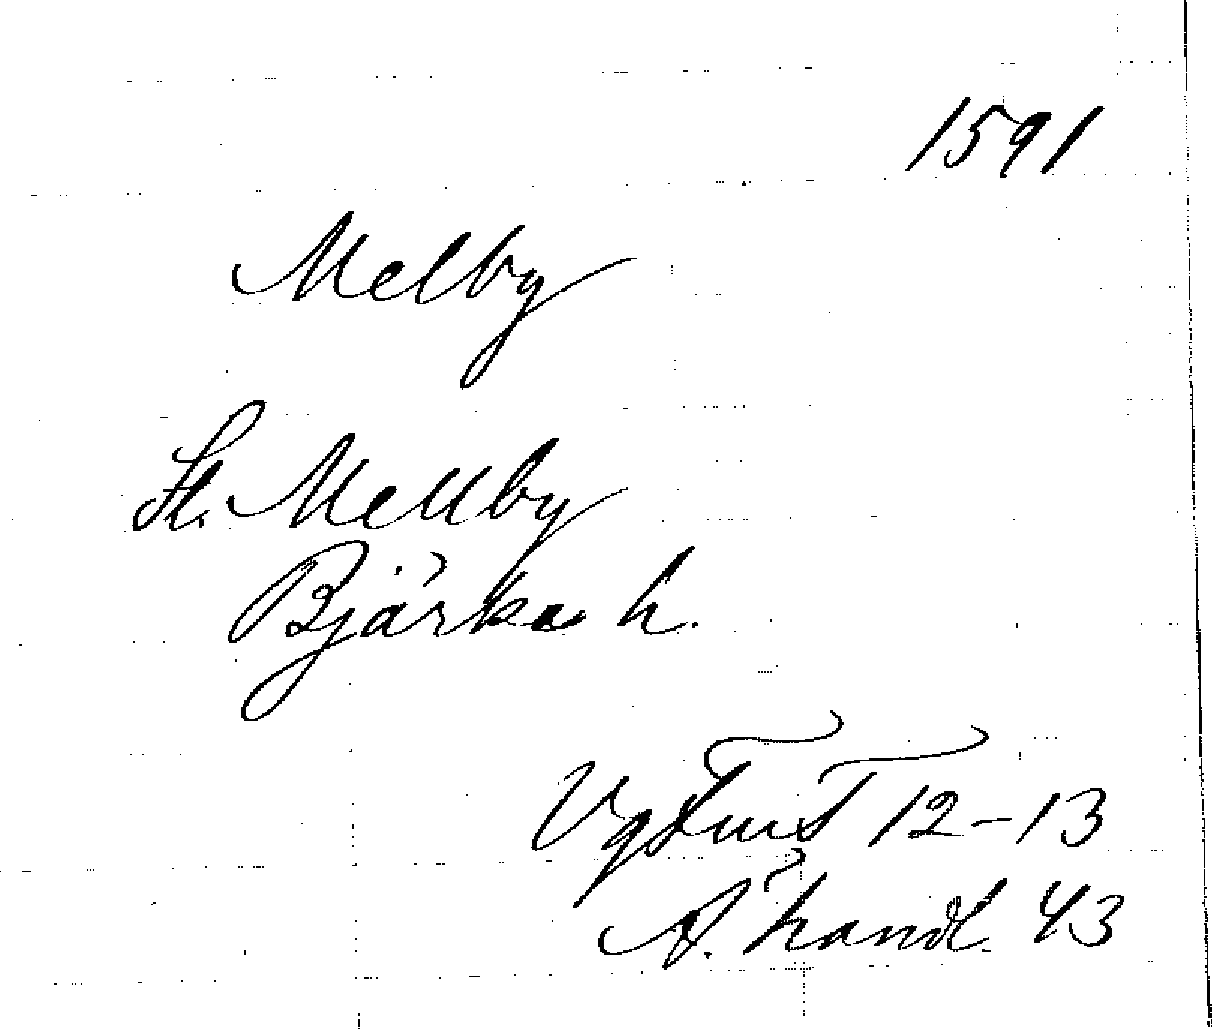 1591
Melby
St. Mellby
Bjärke h.
Vg FmT 12-13
A. handl. 43